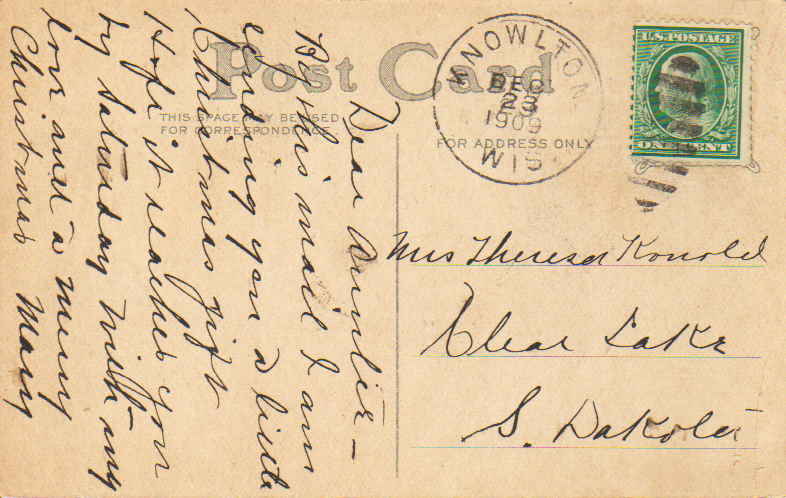 Post Card
THIS SPACE MAY BE USED
FOR CORRESPONDENCE.
FOR ADDRESS ONLY
KNOWLTON
DEC
23
1909
WIS
U.S. POSTAGE
ONE CENT
Dear Auntie –
By this mail I am
sending you a little
Christmas gift
Hope it reaches you
by Saturday with my
love and a merry
Christmas Mary
Mrs Theresa Konold
Clear Lake
S. Dakota